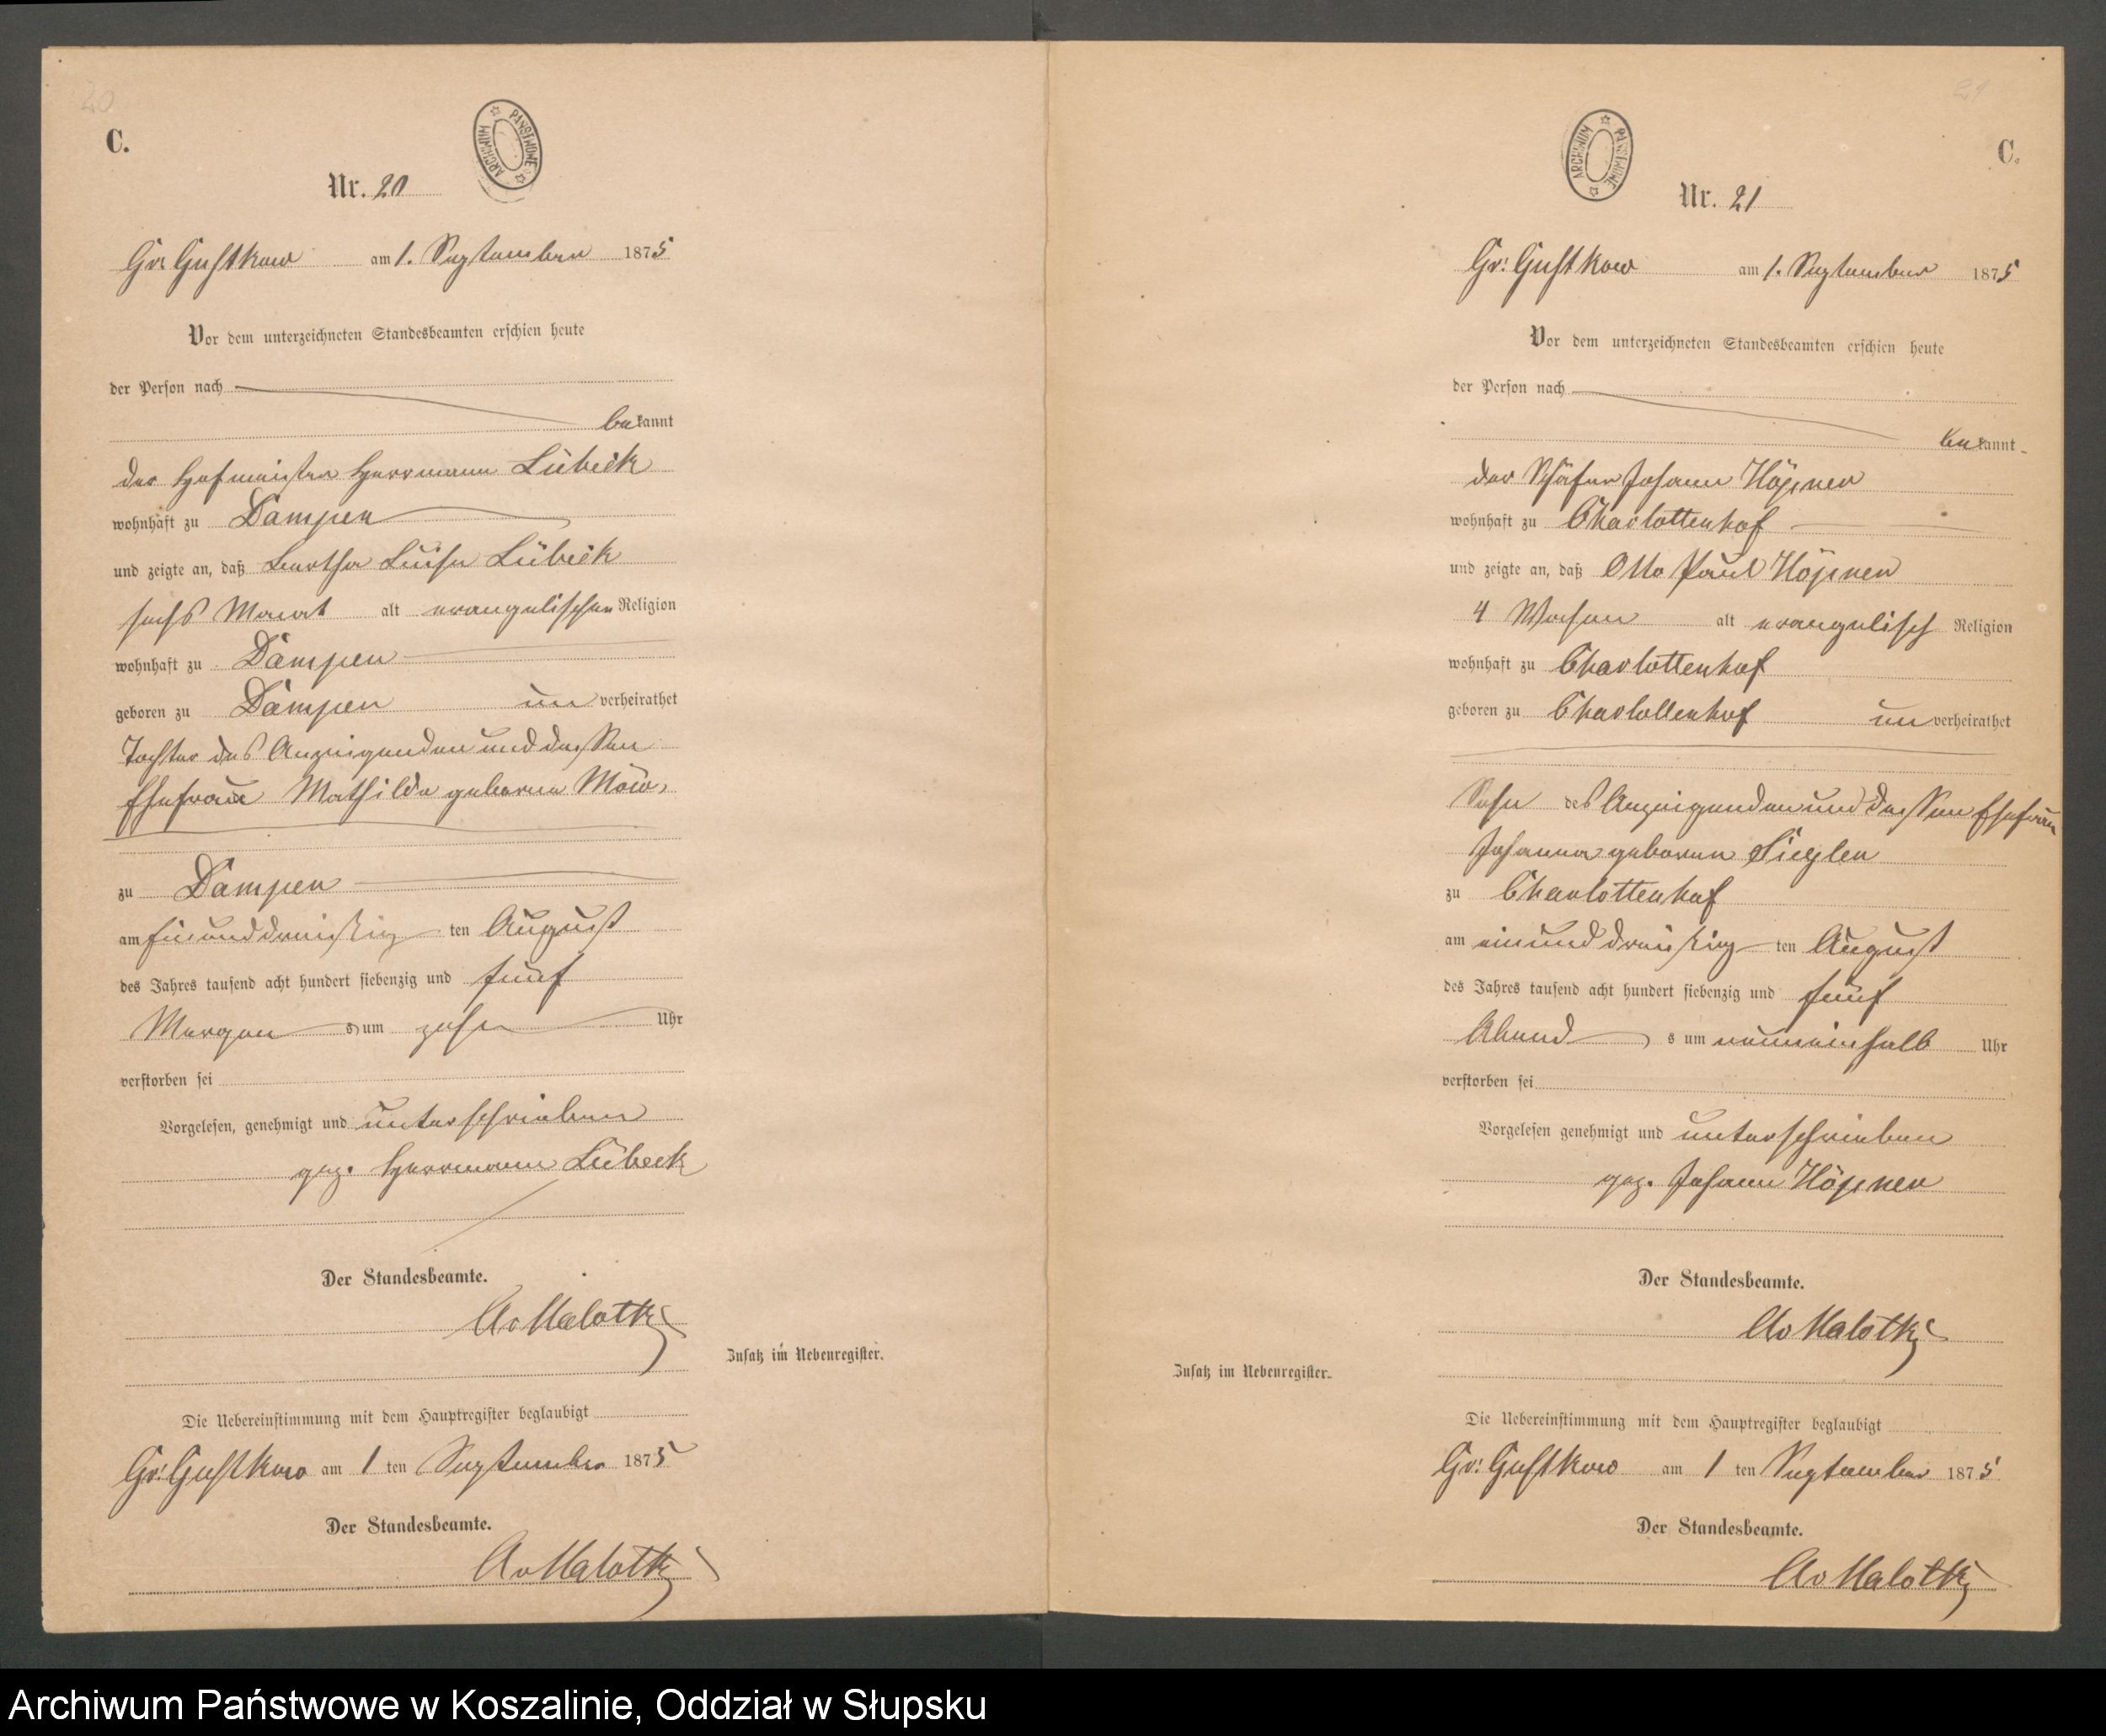 20
C.
ARCHIWUM PAŃSTWOWE
Nr. 20
Gr: Gustkow am 1. September 1875
Vor dem unterzeichneten Standesbeamten erschien heute
der Person nach
bekannt
der Hofmeister Herrmann Lübeck
wohnhaft zu Dampen
und zeigte an, daß Bertha Luise Lübeck
sechs Monat alt evangelischer Religion
wohnhaft zu Dampen
geboren zu Dampen unverheirathet
Tochter des Anzeigenden und dessen
Ehefrau Mathilde geborne
zu Dampen
am Einunddreißig ten August
des Jahres tausend acht hundert siebenzig und fünf
Morgen s um zehn Uhr
verstorben sei
Vorgelesen, genehmigt und unterschrieben
gez. Herrmann Lübeck
Der Standesbeamte.
Av Malotki
Zusatz im Nebenregister.
Die Uebereinstimmung mit dem Hauptregister beglaubigt
Gr: Gustkow am 1 ten September 1875
Der Standesbeamte.
Av Malotki
21
C.
ARCHIWUM PAŃSTWOWE
Nr. 21
Gr: Gustkow am 1. September 1875
Vor dem unterzeichneten Standesbeamten erschien heute
der Person nach
bekannt
der Schäfer Johann Höpner
wohnhaft zu Charlottenhof
und zeigte an, daß Otto Paul Höpner
4 Wochen alt evangelisch Religion
wohnhaft zu Charlottenhof
geboren zu Charlottenhof unverheirathet
Sohn des Anzeigenden und dessen Ehefrau
Johanna geboren
zu Charlottenhof
am einunddreißig ten August
des Jahres tausend acht hundert siebenzig und fünf
Abend s um neuneinhalb Uhr
verstorben sei
Vorgelesen genehmigt und unterschrieben
gez. Johann Höpner
Der Standesbeamte.
Av Malotki
Zusatz im Nebenregister.
Die Uebereinstimmung mit dem Hauptregister beglaubigt
Gr: Gustkow am 1 ten September 1875
Der Standesbeamte.
Av Malotki
Archiwum Państwowe w Koszalinie, Oddział w Słupsku